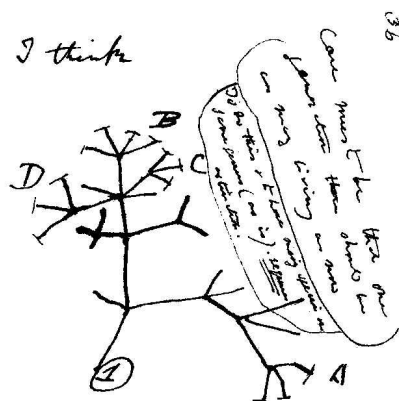 36
I think
Case must be that one
generation then should be
as many living as now
To do this & to have many species in
same genus (as is). requires
extinction
B
C
D
A
1